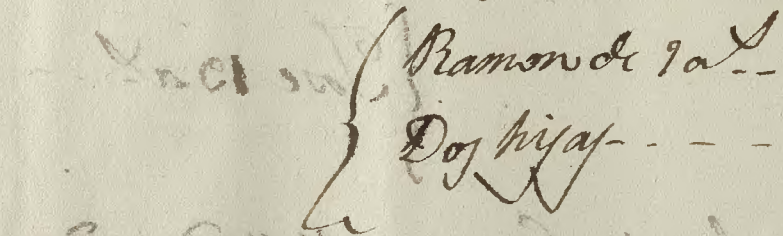 Ramon de 9 a.s
Dos hijas